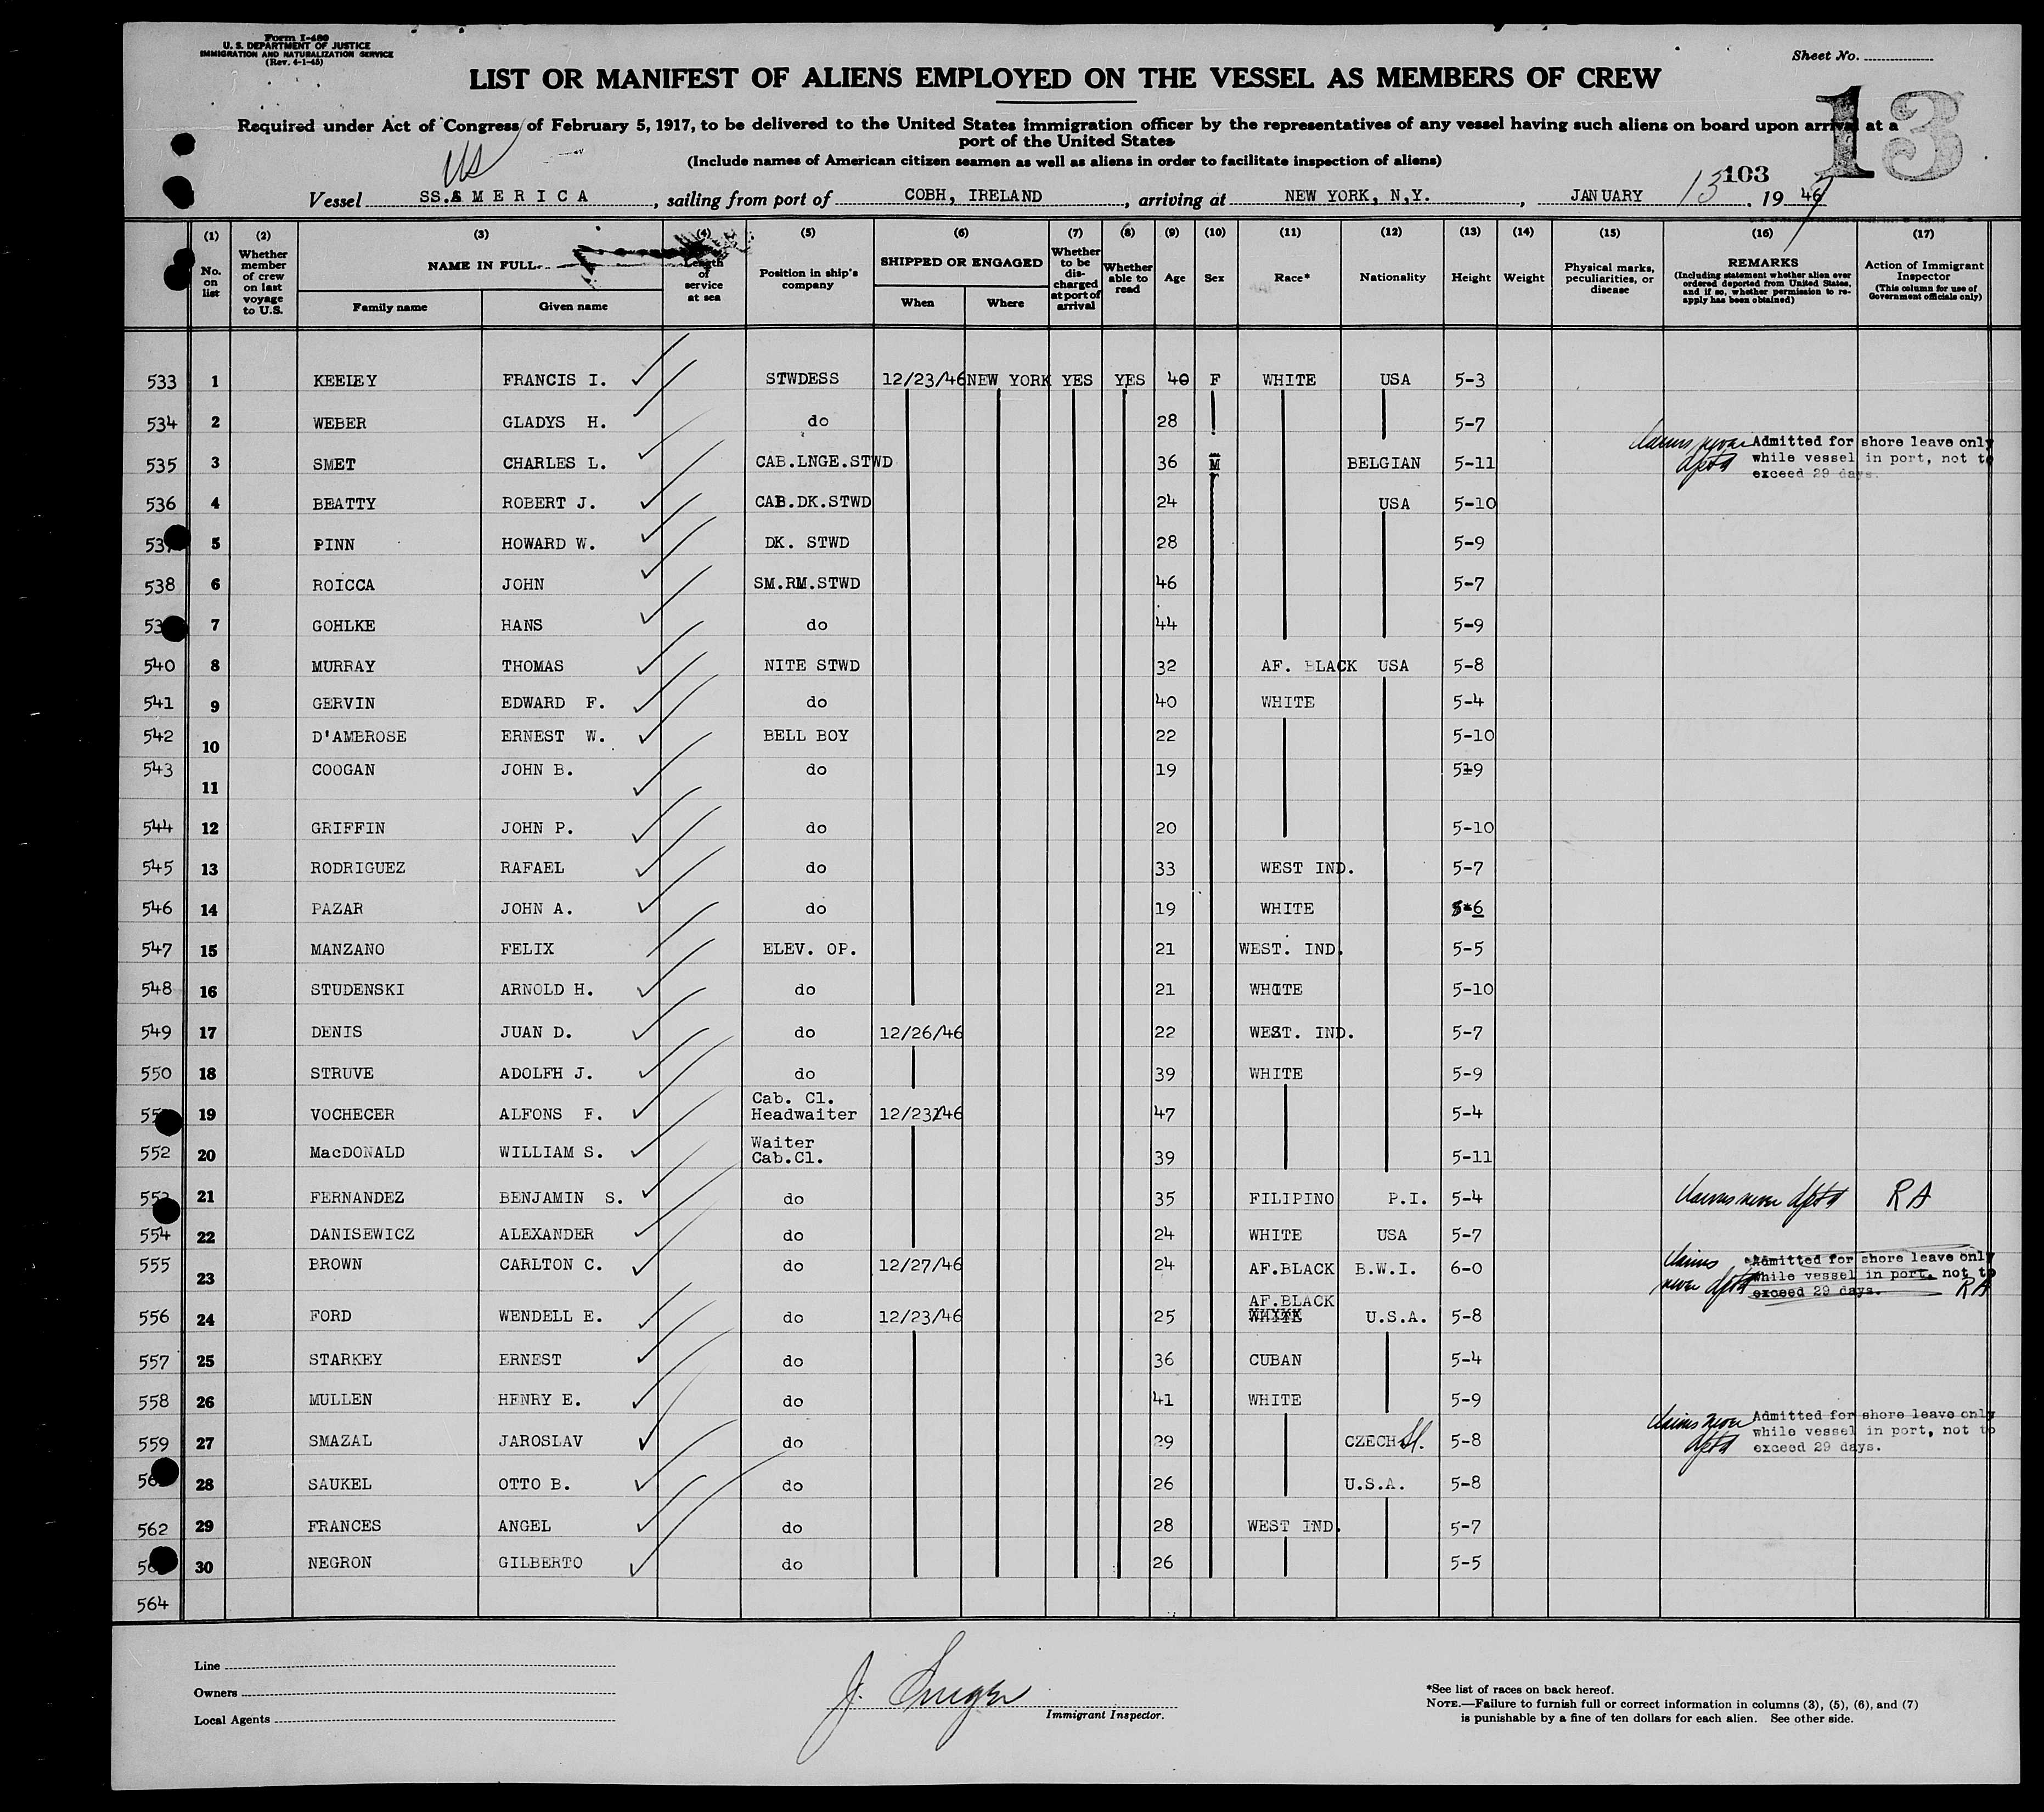 Form I-489
U. S. DEPARTMENT OF JUSTICE
IMMIGRATION AND NATURALIZATION SERVICE
(Rev. 4-1-45)
Sheet No.
LIST OR MANIFEST OF ALIENS EMPLOYED ON THE VESSEL AS MEMBERS OF CREW
13
Required under Act of Congress of February 5, 1917, to be delivered to the United States immigration officer by the representatives of any vessel having such aliens on board upon arrival at a
port of the United States
(Include names of American citizen seamen as well as aliens in order to facilitate inspection of aliens)
US
103
Vessel SS. AMERICA, sailing from port of COBH, IRELAND, arriving at NEW YORK, N,Y., JANUARY 13, 1947
(1) (2) (3) (4) (5) (6) (7) (8) (9) (10) (11) (12) (13) (14) (15) (16) (17)
No. on list
Whether member of crew on last voyage to U.S.
NAME IN FULL
Family name Given name
Length of service at sea
Position in ship's company
SHIPPED OR ENGAGED
When Where
Whether to be discharged at port of arrival
Whether able to read
Age
Sex
Race*
Nationality
Height
Weight
Physical marks, peculiarities, or disease
REMARKS
(Including statement whether alien ever ordered deported from United States, and if so, whether permission to reapply has been obtained)
Action of Immigrant Inspector
(This column for use of Government officials only)
533 1 KEELEY FRANCIS I. STWDESS 12/23/46 NEW YORK YES YES 40 F WHITE USA 5-3
534 2 WEBER GLADYS H. do 28 5-7
535 3 SMET CHARLES L. CAB.LNGE.STWD 36 M BELGIAN 5-11 claims never dptd Admitted for shore leave only while vessel in port, not to exceed 29 days.
536 4 BEATTY ROBERT J. CAB.DK.STWD 24 USA 5-10
537 5 PINN HOWARD W. DK. STWD 28 5-9
538 6 ROICCA JOHN SM.RM.STWD 46 5-7
53 7 GOHLKE HANS do 44 5-9
540 8 MURRAY THOMAS NITE STWD 32 AF. BLACK USA 5-8
541 9 GERVIN EDWARD F. do 40 WHITE 5-4
542 10 D'AMBROSE ERNEST W. BELL BOY 22 5-10
543 11 COOGAN JOHN B. do 19 5-9
544 12 GRIFFIN JOHN P. do 20 5-10
545 13 RODRIGUEZ RAFAEL do 33 WEST IND. 5-7
546 14 PAZAR JOHN A. do 19 WHITE 5-6
547 15 MANZANO FELIX ELEV. OP. 21 WEST. IND. 5-5
548 16 STUDENSKI ARNOLD H. do 21 WHITE 5-10
549 17 DENIS JUAN D. do 12/26/46 22 WEST. IND. 5-7
550 18 STRUVE ADOLFH J. do 39 WHITE 5-9
55 19 VOCHECER ALFONS F. Cab. Cl. Headwaiter 12/23/46 47 5-4
552 20 MacDONALD WILLIAM S. Waiter Cab.Cl. 39 5-11
553 21 FERNANDEZ BENJAMIN S. do 35 FILIPINO P.I. 5-4 claims never dptd RA
554 22 DANISEWICZ ALEXANDER do 24 WHITE USA 5-7
555 23 BROWN CARLTON C. do 12/27/46 24 AF.BLACK B.W.I. 6-0 claims never dptd Admitted for shore leave only while vessel in port, not to exceed 29 days. RA
556 24 FORD WENDELL E. do 12/23/46 25 AF.BLACK U.S.A. 5-8
557 25 STARKEY ERNEST do 36 CUBAN 5-4
558 26 MULLEN HENRY E. do 41 WHITE 5-9
559 27 SMAZAL JAROSLAV do 29 CZECH-Sl. 5-8 claims never dptd Admitted for shore leave only while vessel in port, not to exceed 29 days.
56 28 SAUKEL OTTO B. do 26 U.S.A. 5-8
562 29 FRANCES ANGEL do 28 WEST IND. 5-7
56 30 NEGRON GILBERTO do 26 5-5
564
Line
Owners
Local Agents
J.
Immigrant Inspector.
*See list of races on back hereof.
NOTE.—Failure to furnish full or correct information in columns (3), (5), (6), and (7)
is punishable by a fine of ten dollars for each alien. See other side.